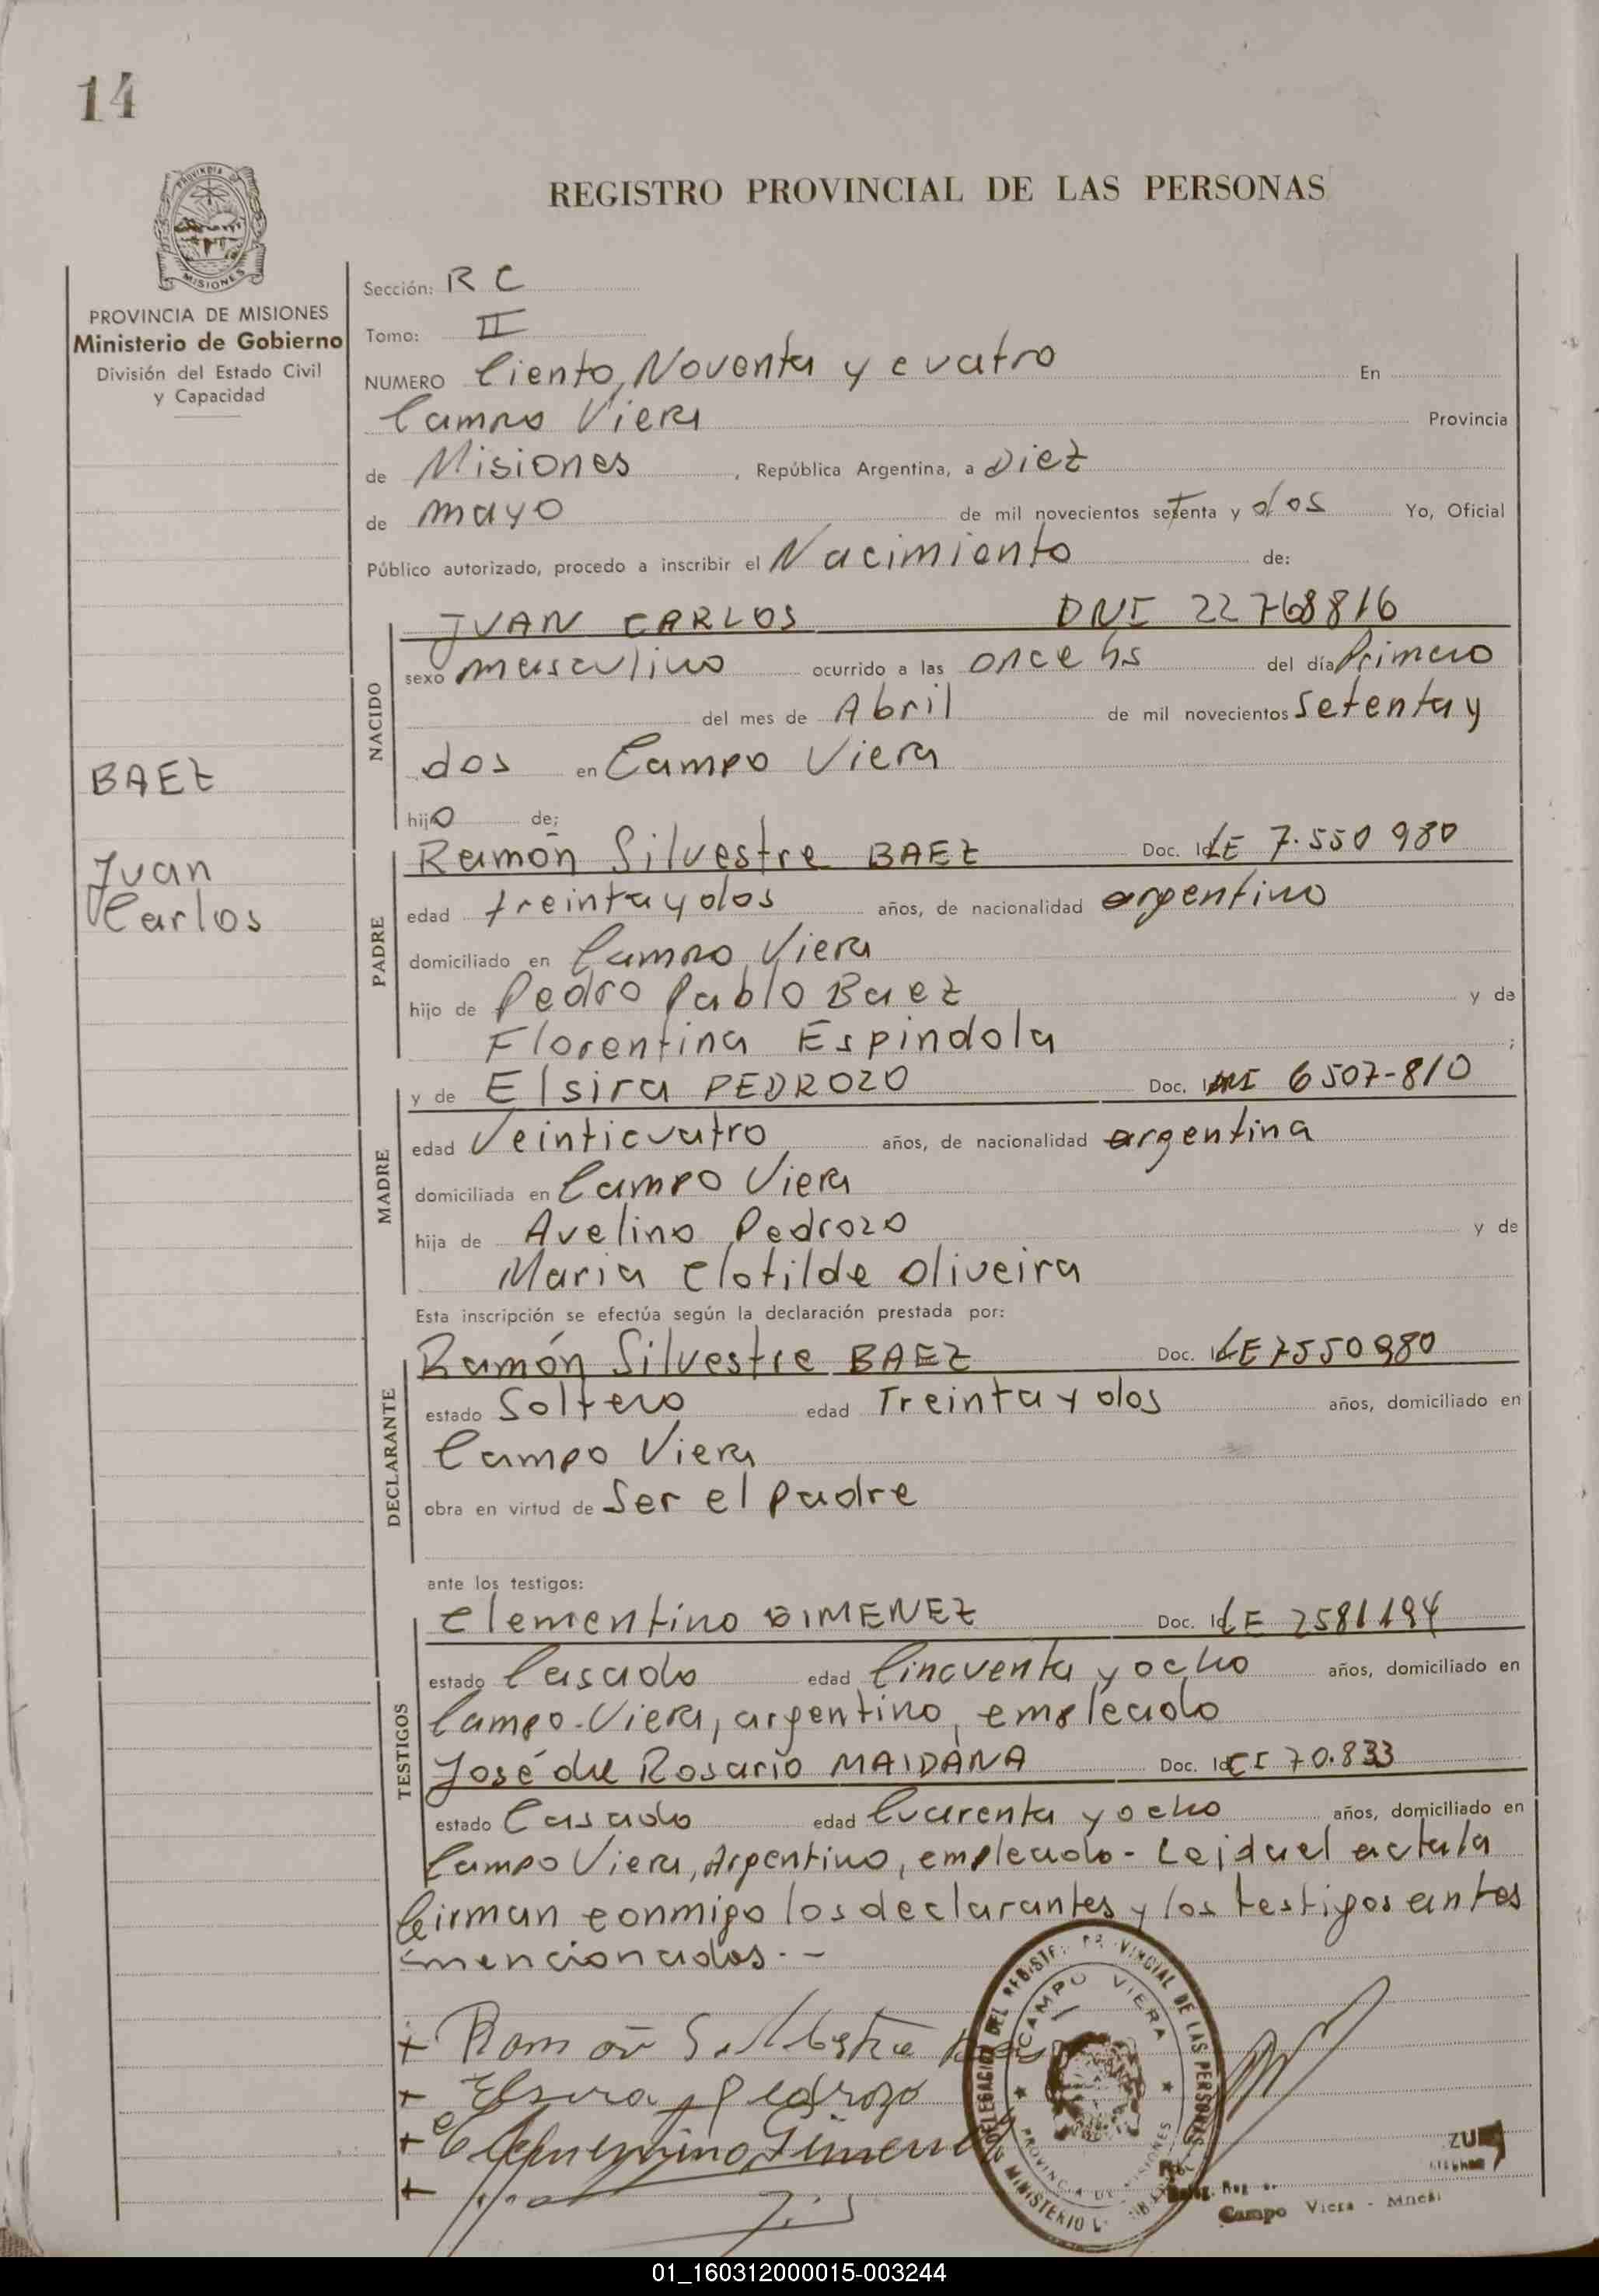 14
REGISTRO PROVINCIAL DE LAS PERSONAS
PROVINCIA MISIONES
PROVINCIA DE MISIONES
Ministerio de Gobierno
División del Estado Civil
y Capacidad
BAEZ
Juan
Carlos
Sección: R C
Tomo: II
NUMERO Ciento, Noventa y cuatro En
Campo Viera Provincia
de Misiones, República Argentina, a Diez
de mayo de mil novecientos setenta y dos Yo, Oficial
Público autorizado, procedo a inscribir el Nacimiento de:
NACIDO
JUAN CARLOS DNI 22768816
sexo masculino ocurrido a las once hs del día Primero
del mes de Abril de mil novecientos setenta y
dos en Campo Viera
hijo de;
PADRE
Ramón Silvestre BAEZ Doc. Id LE 7.550 980
edad treinta y dos años, de nacionalidad argentino
domiciliado en Campo Viera
hijo de Pedro Pablo Baez y de
Florentina Espindola ;
MADRE
y de Elsira PEDROZO Doc. 6507-810
edad Veinticuatro años, de nacionalidad argentina
domiciliada en Campo Viera
hija de Avelino Pedrozo y de
Maria Clotilde Oliveira
Esta inscripción se efectúa según la declaración prestada por:
DECLARANTE
Ramón Silvestre BAEZ Doc. Id LE 7550980
estado Soltero edad Treinta y dos años, domiciliado en
Campo Viera
obra en virtud de Ser el padre
ante los testigos:
TESTIGOS
Clementino GIMENEZ Doc. Id LE 2581194
estado Casado edad Cincuenta y ocho años, domiciliado en
Campo-Viera, argentino, empleado
José del Rosario MAIDANA Doc. Id CI 70.833
estado Casado edad Cuarenta y ocho años, domiciliado en
Campo Viera, Argentino, empleado - Leida el acta la
firman conmigo los declarantes y los testigos antes
mencionados.-
+ Ramon Silbestre
+ Elsira Pedrozo
+ Clementino Gimenez
+
DELEGACION DEL REGISTRO PROVINCIAL DE LAS PERSONAS
CAMPO VIERA
PROVINCIA DE MISIONES
MINISTERIO
ZU
Campo Viera - Mnes
01_160312000015-003244